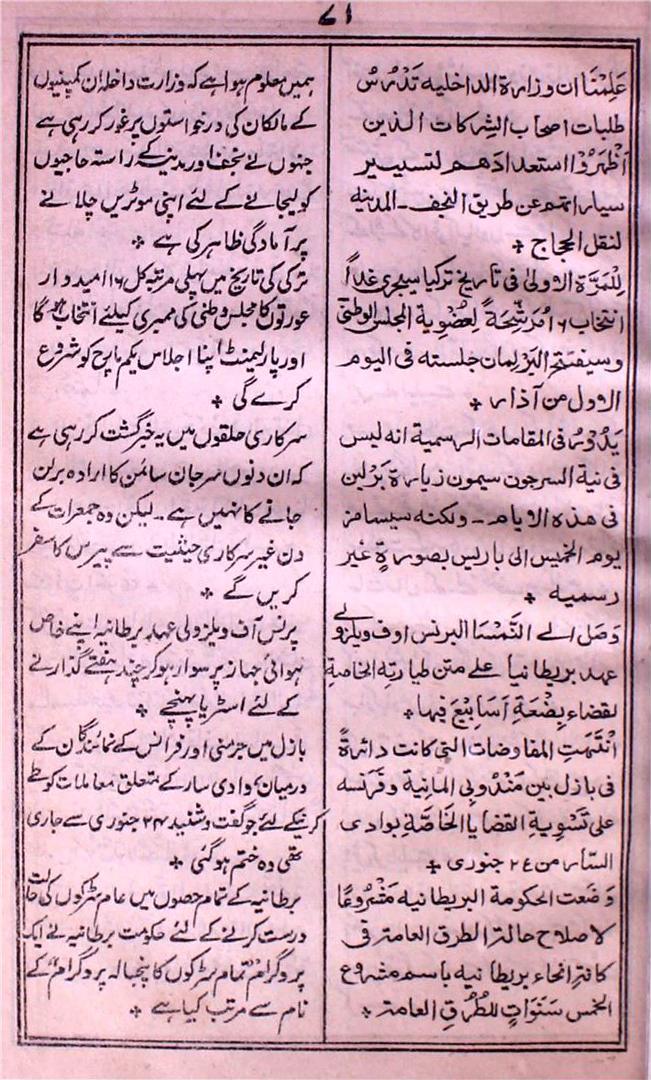 ۷۱
عَلِمْنَا ان وزارة الداخلیه تَدْرُسُ
طلبات اصحاب الشرکات الذین
اَظْهَرُوْا استعدادهم لتسییر
سیاراتهم عن طریق النجف ۔ المدینه
لنقل الحجاج ٭
لِلْمَرَّة الاولیٰ فی تاریخ ترکیا سیجری غداً
انتخاب ۱۶ مُرَشَّحَةً لعُضویة المجلس الوطنی
وسیفتتح البَرْلمان جلسته فی الیوم
الاول من آذار ٭
یَدُوْرُ فی المقامات الرسمیة انه لیس
فی نیة السرجون سیمون زیارة بَرْلین
فی هذه الایام ۔ ولکنه سیسافر
یوم الخمیس الی باریس بصورةٍ غیر
رسمیه ٭
وَصَل الے النَّمْسَا البرنس اوف ویلز ولی
عهد بریطانیا علے متن طیارته الخاصة
لقضاء بِضْعَةِ اَسَابِیْعَ فیها ٭
اَنْتَهَتِ المفاوضات التی کانت دائرةً
فی بازل بین مَنْدُوْبِی المانیة وفَرَنسه
علی تَسْوِیةِ القضایا الخاصَّةِ بوادی
السَّار من ٢٤ جنوری ٭
وَضَعت الحکومة البریطانیه مَشْرُوعًا
لاصلاح حالة الطرق العامة فی
کافة انحاء بریطانیه باسم مشروع
الخمس سَنَوَاتٍ للطُّرُقِ العامة ٭
ہمیں معلوم ہوا ہے کہ وزارت داخلہ ان کمپنیوں
کے مالکان کی درخواستوں پر غور کر رہی ہے
جنہوں نے نجف اور مدینہ کے راستہ حاجیوں
کو لیجانے کے لئے اپنی موٹریں چلانے
پر آمادگی ظاہر کی ہے ٭
ترکی کی تاریخ میں پہلی مرتبہ کل ۱۶ امیدوار
عورتوں کا مجلس وطنی کی ممبری کیلئے انتخاب ہوگا
اور پارلیمنٹ اپنا اجلاس یکم مارچ کو شروع
کرے گی ٭
سرکاری حلقوں میں یہ خبر گشت کر رہی ہے
کہ ان دنوں سرجان سائمن کا ارادہ برلن
جانے کا نہیں ہے ۔ لیکن وہ جمعرات کے
دن غیر سرکاری حیثیت سے پیرس کا سفر
کریں گے ٭
پرنس آف ویلز ولی عہد برطانیہ اپنے خاص
ہوائی جہاز پر سوار ہو کر چند ہفتے گذارنے
کے لئے اسٹریا پہنچے ٭
بازل میں جرمنی اور فرانس کے نمائندگان کے
درمیان وادی سار کے متعلق معاملات کو طے
کرنیکے لئے جو گفت و شنید ۲۴ جنوری سے جاری
تھی وہ ختم ہو گئی ٭
برطانیہ کے تمام حصوں میں عام سڑکوں کی حالت
درست کرنے کے لئے حکومت برطانیہ نے ایک
پروگرام "تمام سڑکوں کا پنجسالہ پروگرام" کے
نام سے مرتب کیا ہے ٭